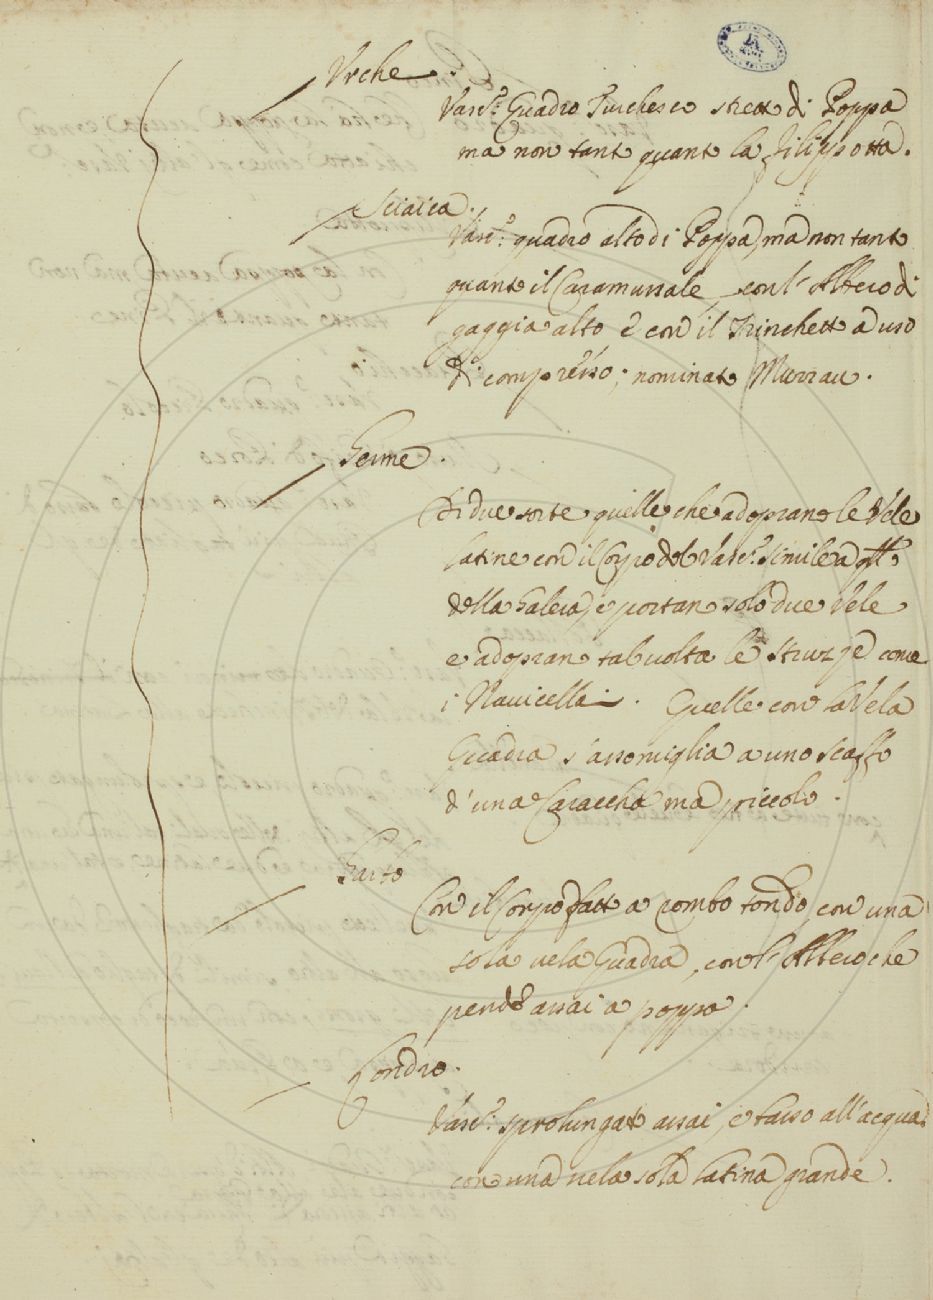 Urche.
Vasc.º Quadro Turchesco strett di Poppa
ma non tant quant la Filippotta.
Sciaica.
Vasc.º quadro alto di Poppa, ma non tant
quant il Caramussale, con l'Albero di
gaggia alto e con il Trinchett a uso
di compresso; nominat Murrau.
Germe.
Di due sorte quelle che adopran le Vele
latine con il Corpo del Vasc.º simile a
della Galera, e portan solo due Vele
e adopran tal volta le Struzje come
i Navicelli. Quelle con la Vela
Quadra s'assomiglia a uno Scaffo
d'una Caraccha ma piccolo.
Garbo
Con il Corpo fatt a piombo tondo, con una
sola vela Quadra, con l'Albero che
pende assai a poppa.
Londro.
Vasc.º sprolungat assai, e basso all'acqua
con una vela sola latina grande.